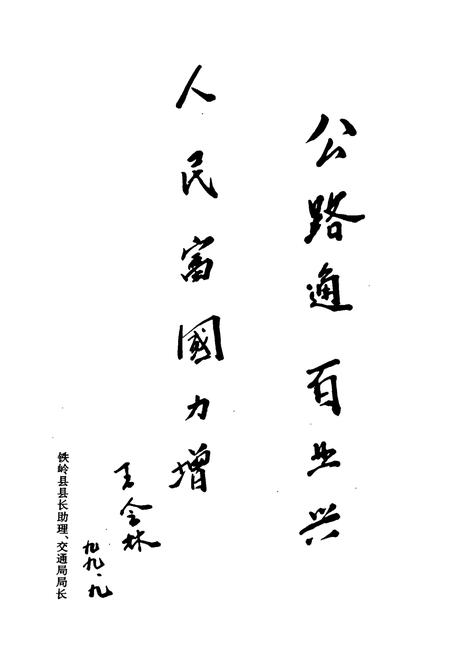 公路通百业兴
人民富國力增
王金林
九九·九
铁岭县县长助理、交通局局长